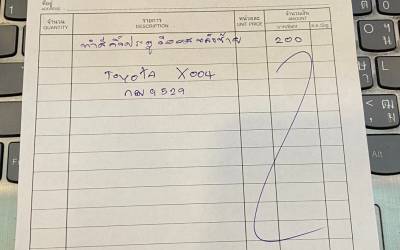 ที่อยู่
ADDRESS
จำนวน รายการ หน่วยละ จำนวนเงิน
QUANTITY DESCRIPTION UNIT PRICE AMOUNT
ทำสีคิ้วประตู 200
TOYOTA X004
9529